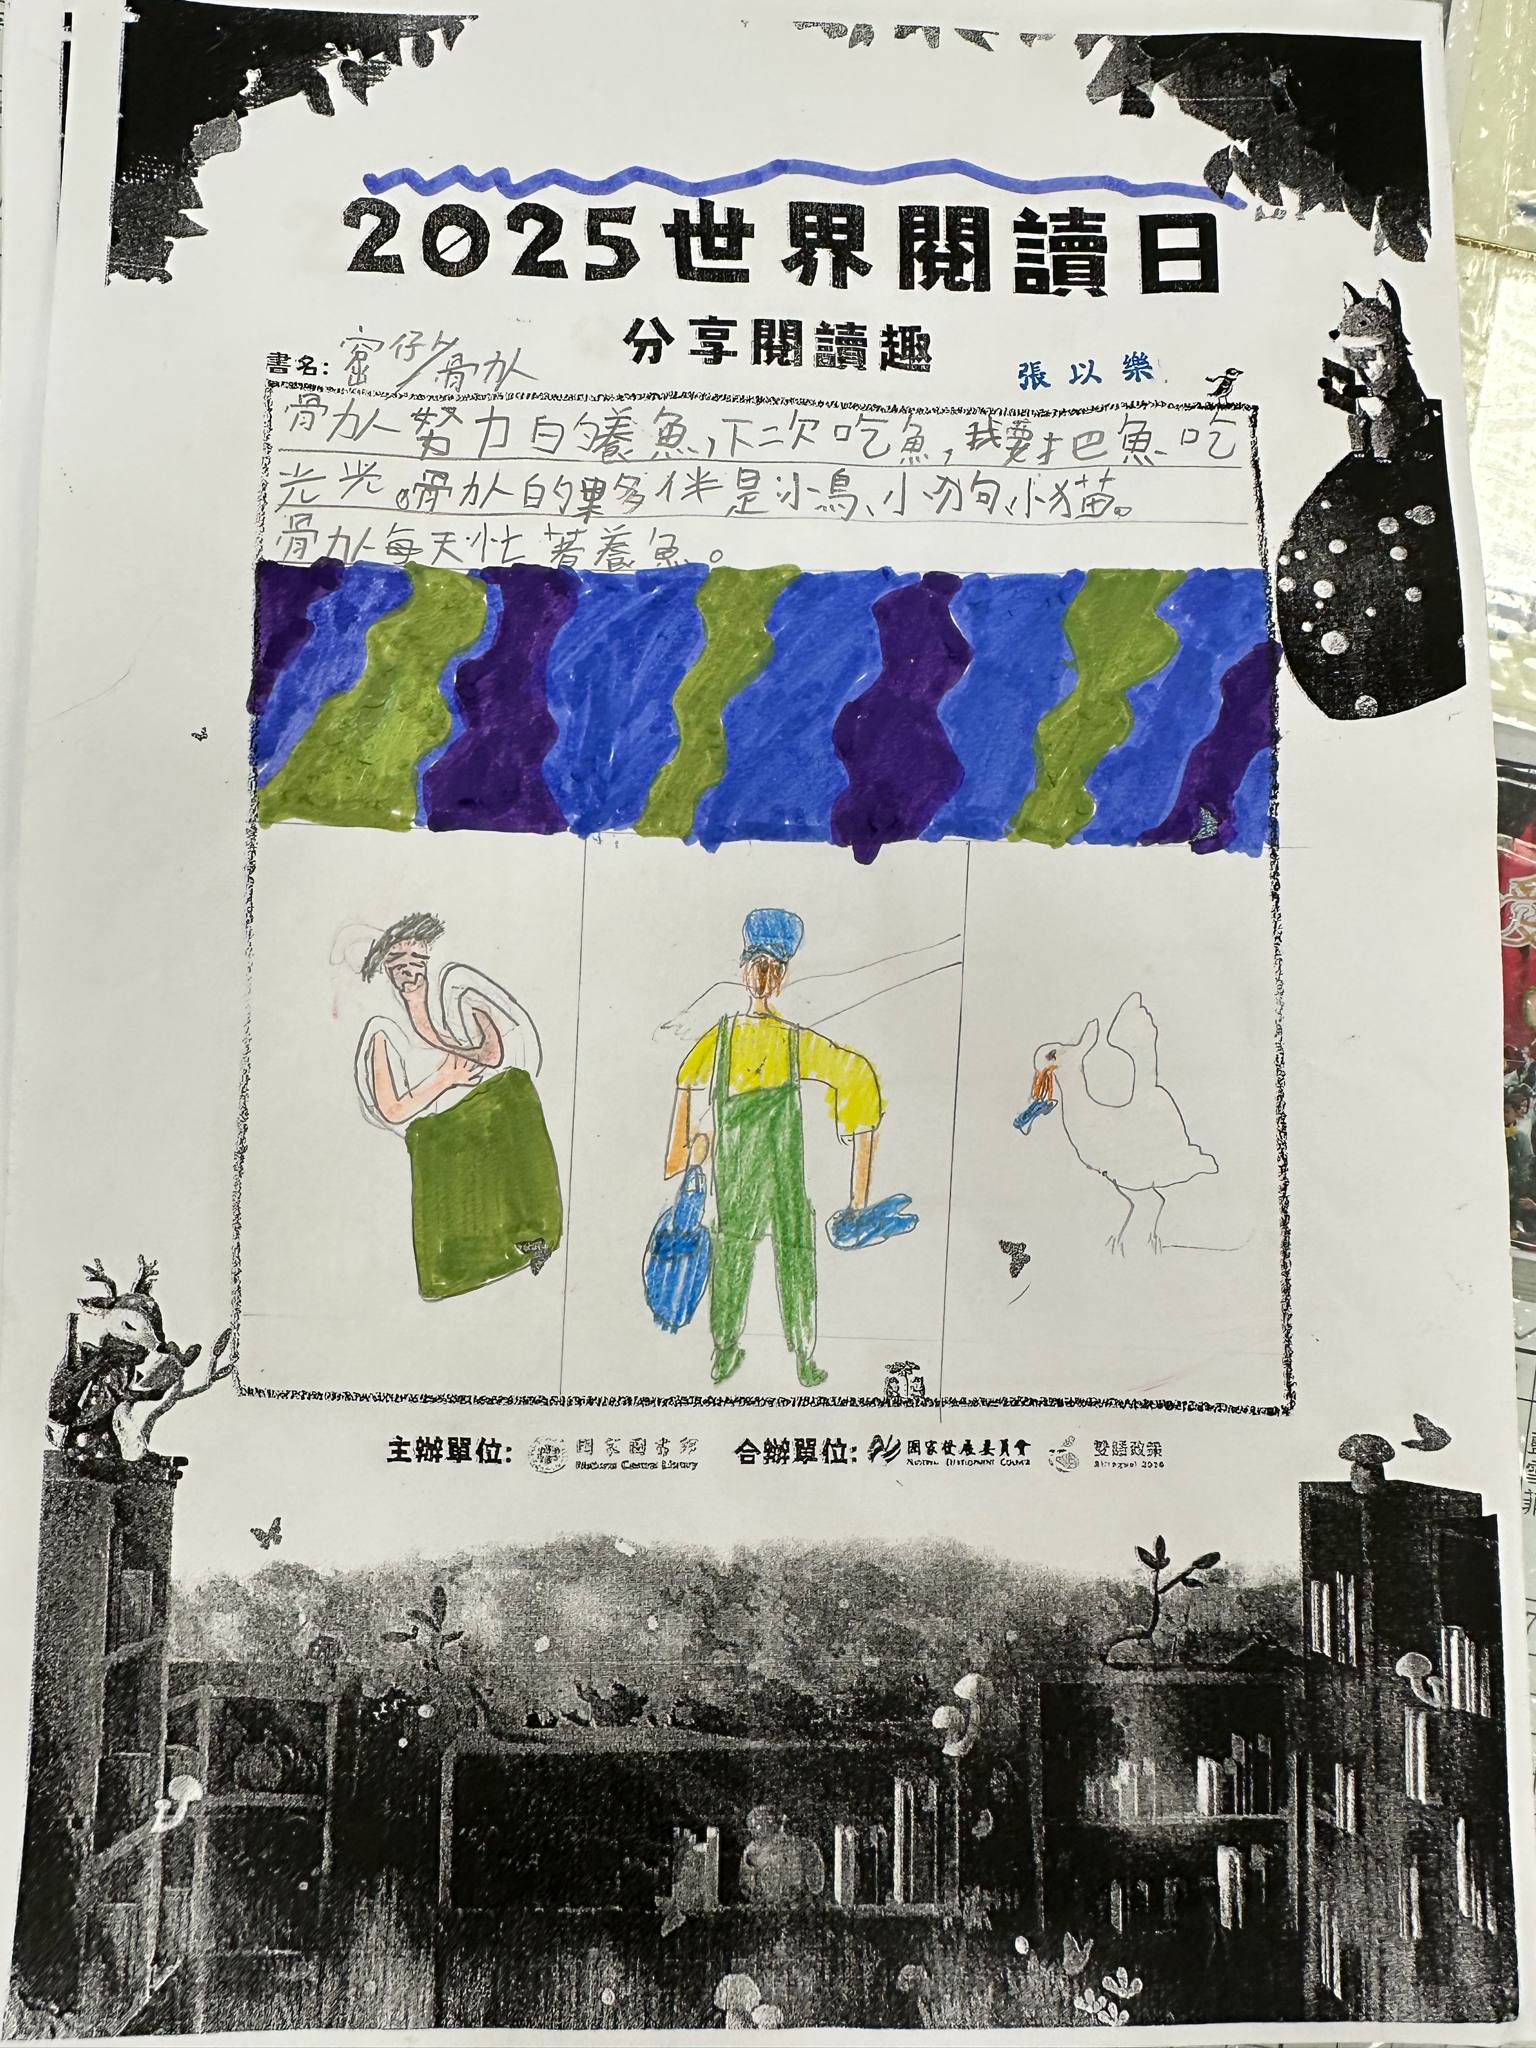 2025世界閱讀日
分享閱讀趣
書名: 窟仔 骨力人
張以樂
骨力人努力的養魚,下次吃魚,我要把魚吃
光光。骨力人的夥伴是小鳥、小狗、小猫。
骨力人每天忙著養魚。
主辦單位: 國家圖書館 合辦單位: 國家發展委員會 雙語政策
National Central Library National Development Council Bilingual 2030